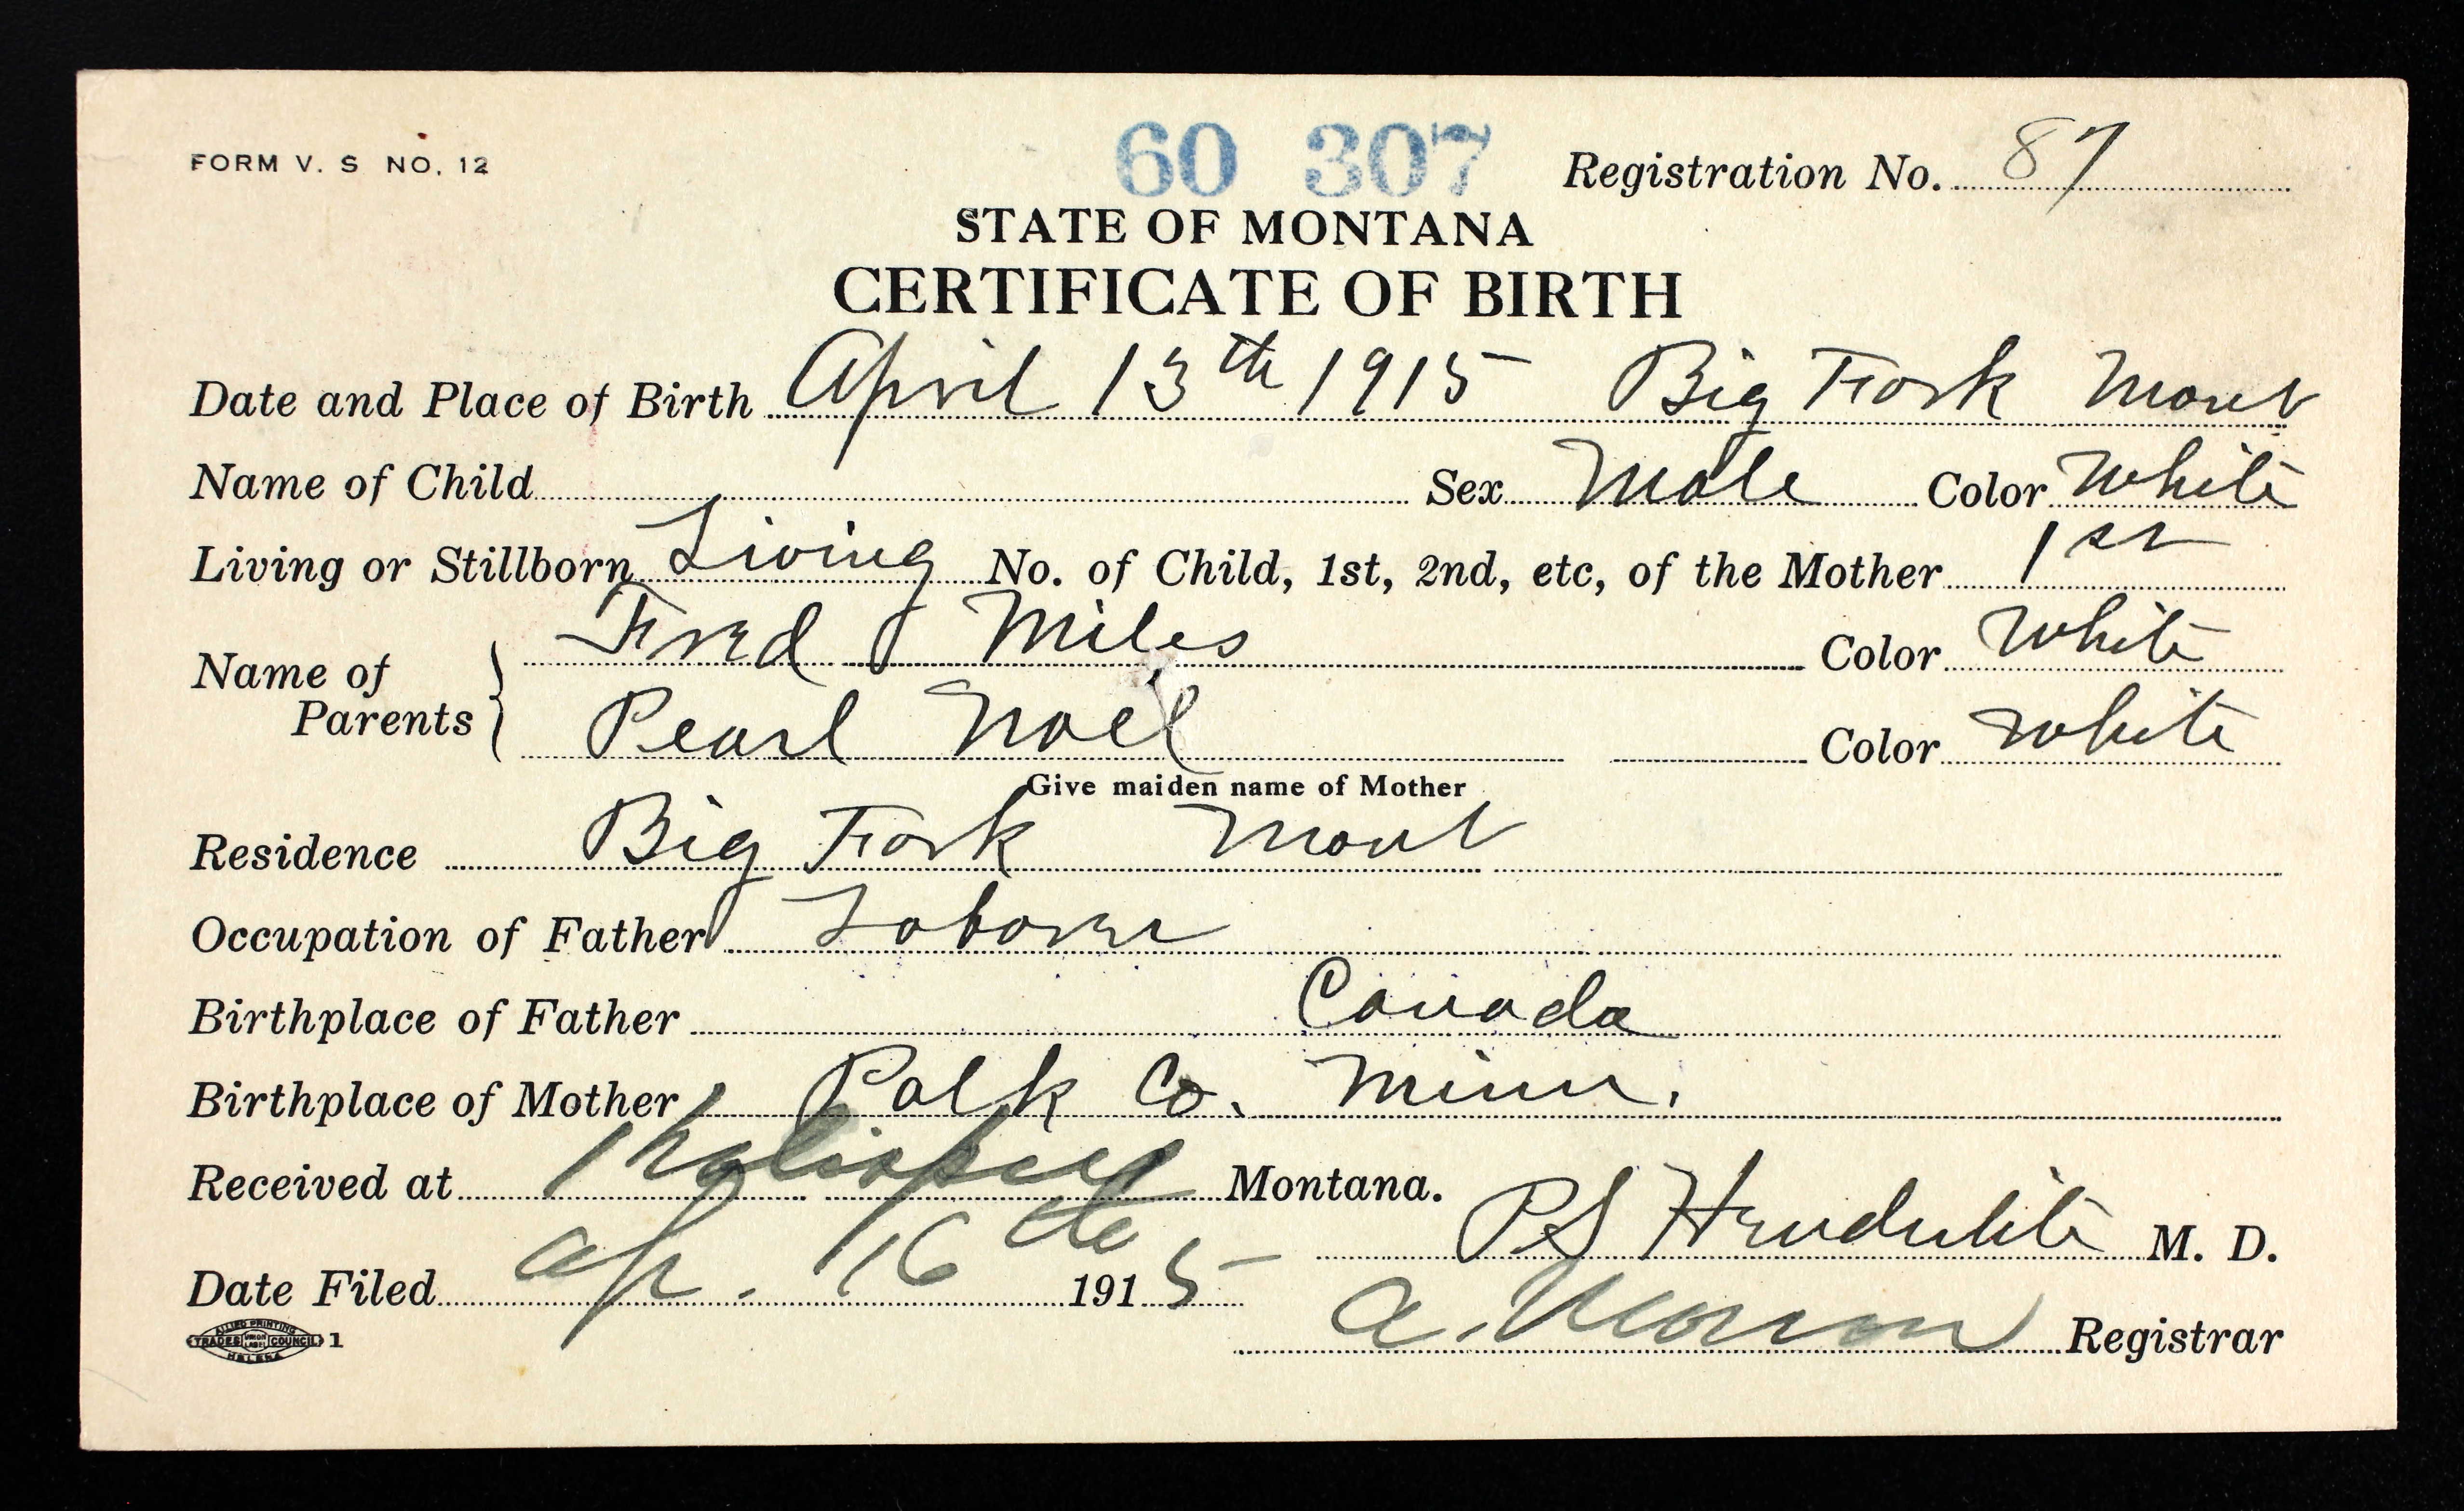 60 307
FORM V. S NO. 12
Registration No. 87
STATE OF MONTANA
CERTIFICATE OF BIRTH
Date and Place of Birth April 13th 1915 Big Fork Mont
Name of Child Sex Male Color White
Living or Stillborn Living No. of Child, 1st, 2nd, etc, of the Mother 1st
Name of Parents
Fred Miles Color White
Pearl Noel Color White
Give maiden name of Mother
Residence Big Fork Mont
Occupation of Father Laborer
Birthplace of Father Canada
Birthplace of Mother Polk Co. Minn.
Received at Kalispell Montana.
P S M. D.
Date Filed Ap. 16th 1915
A. Registrar
ALLIED PRINTING
TRADES UNION LABEL COUNCIL 1
HELENA